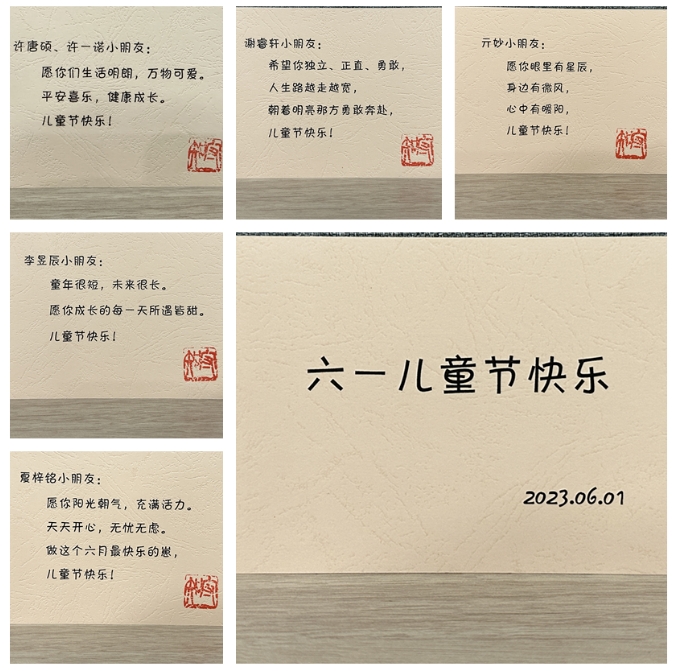 许唐硕、许一诺小朋友：
愿你们生活明朗，万物可爱。
平安喜乐，健康成长。
儿童节快乐！
谢睿轩小朋友：
希望你独立、正直、勇敢，
人生路越走越宽，
朝着明亮那方勇敢奔赴，
儿童节快乐！
亓妙小朋友：
愿你眼里有星辰，
身边有微风，
心中有暖阳，
儿童节快乐！
李昱辰小朋友：
童年很短，未来很长。
愿你成长的每一天所遇皆甜。
儿童节快乐！
夏梓铭小朋友：
愿你阳光朝气，充满活力。
天天开心，无忧无虑。
做这个六月最快乐的崽，
儿童节快乐！
六一儿童节快乐
2023.06.01